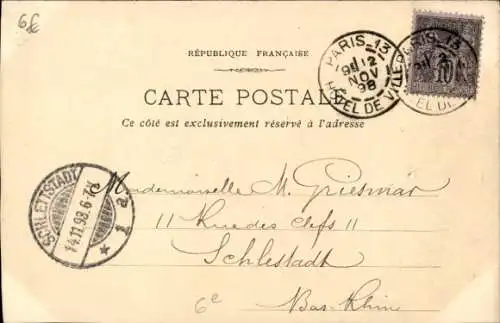 6€
RÉPUBLIQUE FRANÇAISE
CARTE POSTALE
Ce côté est exclusivement réservé à l'adresse
PARIS-13
12
NOV
98
HÔTEL DE VILLE
PARIS-13
10
SCHLETTSTADT
14.11.98.6-7V.
* 2 a
Mademoiselle M. Griesmar
11 Rue des Clefs 11
Schlestadt
6e
Bas-Rhin